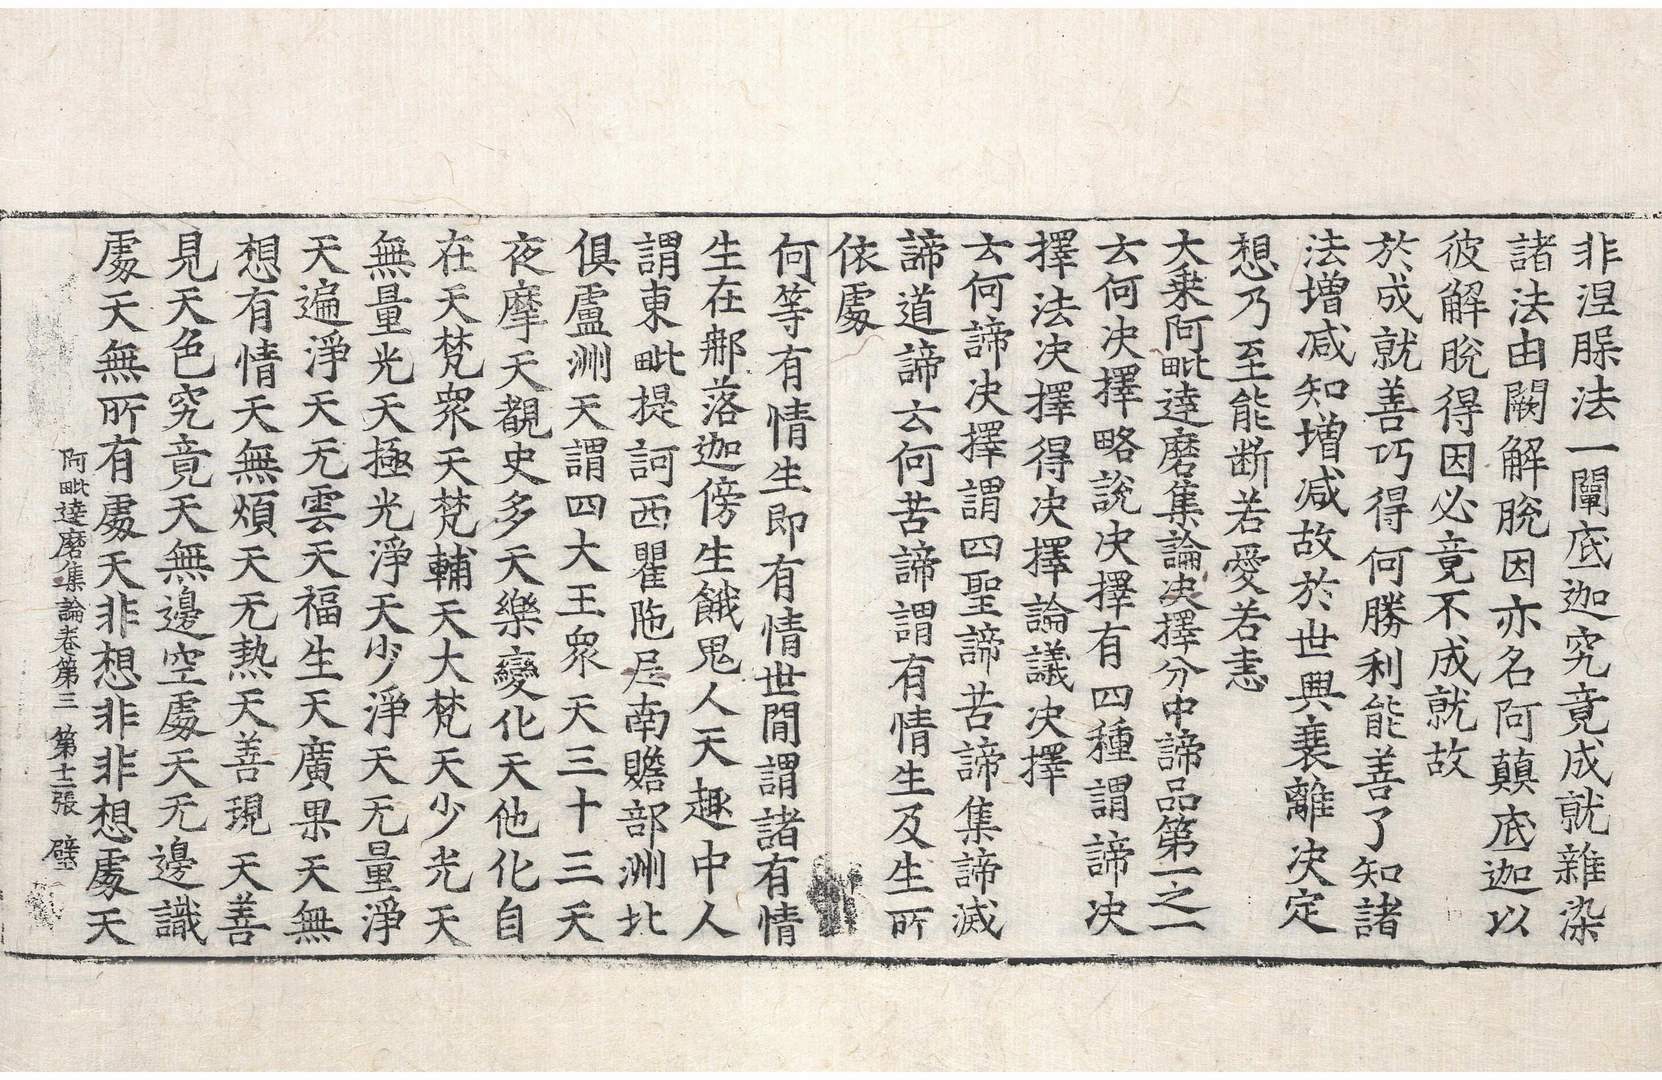 非涅槃法一闡底迦究竟成就雜染
諸法由闕解脫因亦名阿顛底迦以
彼解脫得因必竟不成就故
於成就善巧得何勝利能善了知諸
法增减知增减故於世興衰離决定
想乃至能断若愛若恚
大乗阿毗達磨集論决擇分中諦品第一之一
云何决擇略說决擇有四種謂諦决
擇法决擇得决擇論議决擇
云何諦决擇謂四聖諦苦諦集諦滅
諦道諦云何苦諦謂有情生及生所
依處
何等有情生即有情世間謂諸有情
生在郍落迦傍生餓鬼人天趣中人
謂東毗提訶西瞿陁尼南贍部洲北
俱盧洲天謂四大王衆天三十三天
夜摩天覩史多天樂變化天他化自
在天梵衆天梵輔天大梵天少光天
無量光天極光淨天少淨天无量淨
天遍淨天无雲天福生天廣果天無
想有情天無煩天无熱天善現天善
見天色究竟天無邊空處天无邊識
處天無所有處天非想非非想處天
阿毗達磨集論卷第三 第十二張 璧